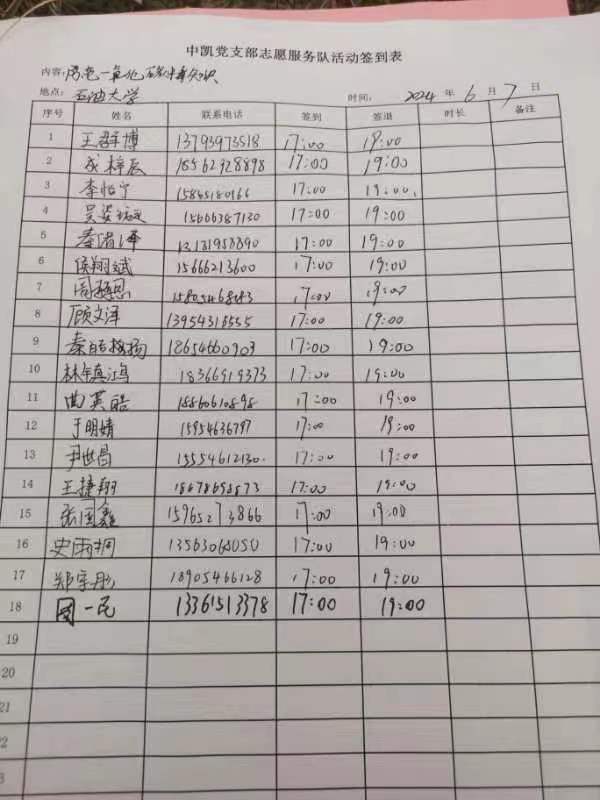 中凯党支部志愿服务队活动签到表
内容: 一氧化碳 知识
地点: 石油大学 时间: 2024 年 6 月 7 日
序号 姓名 联系电话 签到 签退 时长 备注
1 王 博 13793973518 17:00 19:00
2 成梓辰 18562928898 17:00 19:00
3 李怡宁 17:00 19:00
4 吴姿 15666387130 17:00 19:00
5 秦 泽 17:00 19:00
6 侯翔斌 15666213600 17:00 19:00
7 周 恩 17:00 19:00
8 顾文泽 17:00 19:00
9 秦 杨 17:00 19:00
10 林 鸿 18366919373 17:00 19:00
11 曲英皓 17:00 19:00
12 于明婧 15954636797 17:00 19:00
13 尹世昌 15554612130 17:00 19:00
14 王捷翔 17:00 19:00
15 张国鑫 15965273866 17:00 19:00
16 史雨桐 17:00 19:00
17 郑宇彤 18905466128 17:00 19:00
18 一民 13361513378 17:00 19:00
19
20
21
22